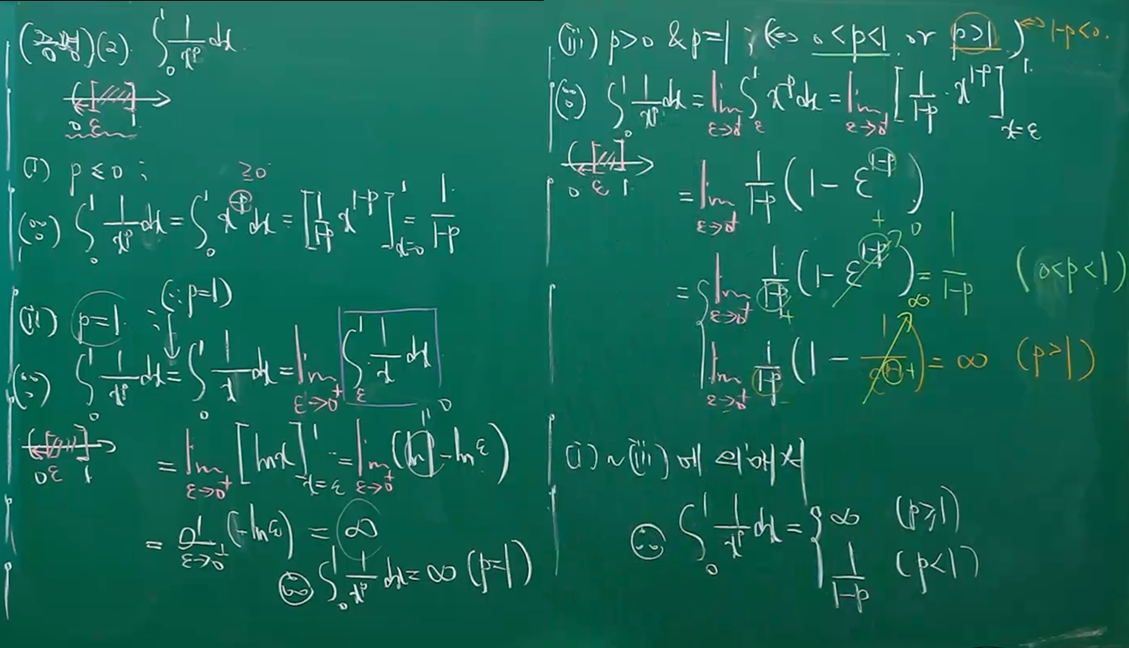 (2) ∫₀¹ 1/xᵖ dx
0 ε 1
(i) p ≤ 0 ;
≥0
(∵) ∫₀¹ 1/xᵖ dx = ∫₀¹ x⁻ᵖ dx = [1/(1-p) x^(1-p)]¹ₓ₌₀ = 1/(1-p)
(∵ p=1)
(ii) p=1 ;
(∵) ∫₀¹ 1/xᵖ dx = ∫₀¹ 1/x dx = lim ε→0⁺ ∫_ε¹ 1/x dx
0 ε 1
= lim ε→0⁺ [ln x]¹ₓ₌ε = lim ε→0⁺ (ln 1 - ln ε)
= lim ε→0⁺ (-ln ε) = ∞
∴ ∫₀¹ 1/xᵖ dx = ∞ (p=1)
(iii) p>0 & p=1 ; (⇔ 0<p<1 or p>1) ⇔ 1-p<0.
(∵) ∫₀¹ 1/xᵖ dx = lim ε→0⁺ ∫_ε¹ x⁻ᵖ dx = lim ε→0⁺ [1/(1-p) · x^(1-p)]¹ₓ₌ε
0 ε 1
= lim ε→0⁺ 1/(1-p) (1 - ε^(1-p))
= { lim ε→0⁺ 1/(1-p) (1 - ε^(1-p)) = 1/(1-p) (0<p<1)
lim ε→0⁺ 1/(1-p) (1 - 1/ε^(p-1)) = ∞ (p>1)
(i)~(iii)에 의하여
∴ ∫₀¹ 1/xᵖ dx = { ∞ (p≥1)
1/(1-p) (p<1)